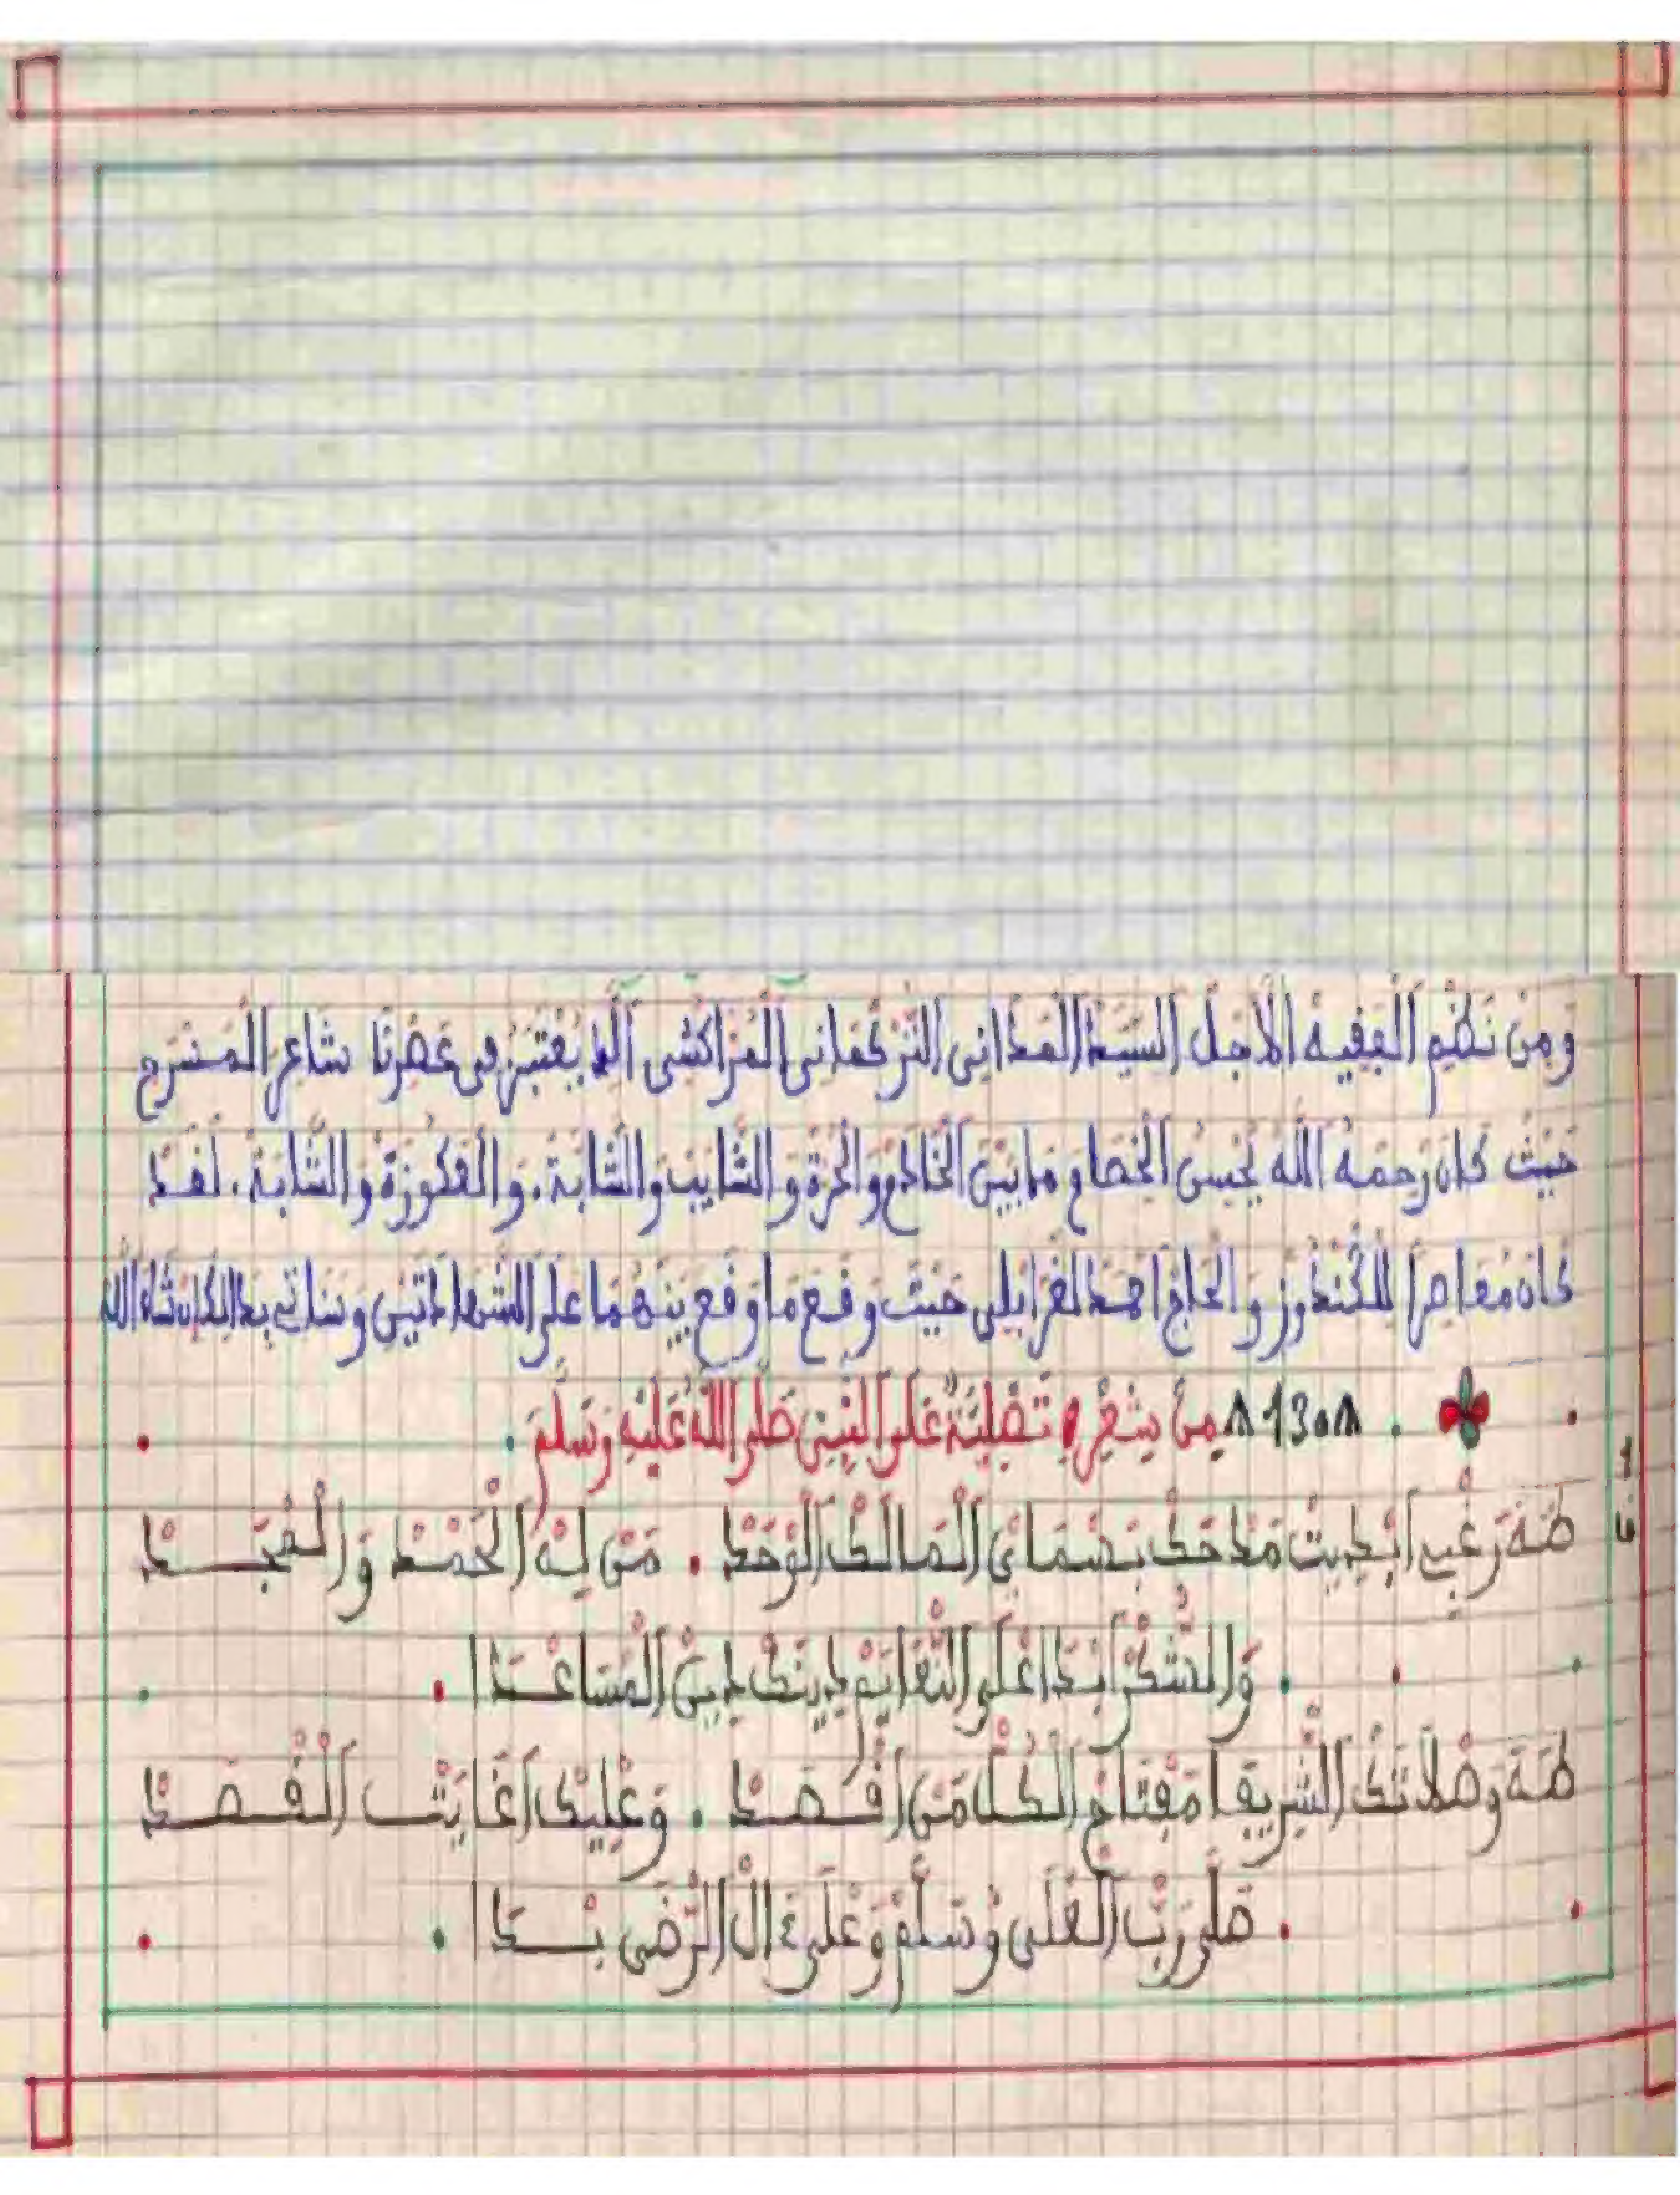 وَمِنْ نَظْمِ الْفَقِيهْ الْأَجَلْ السَّيِّدْ الْمَدَانِي التُّرْكُمَانِي الْمُرَّاكُشِي الَّذِي يُعْتَبَرُ فِي عَصْرِنَا شَاعِرْ الْمَسْرَحِ
حَيْثُ كَانَ رَحِمَهُ اللَّهُ يُحْسِنُ الْخِصَامِ مَا بَيْنَ الْخَادَمْ وَالْحُرَّةْ وَالشَّايِبْ وَالشَّابَّةْ. وَالْعَكُوزَةْ وَالشَّابَّةْ. لَقَدْ
كَانَ مُعَاصِرًا لِلْكَنْدُوزْ وَالْحَاجْ احْمَدْ لَغْرَابْلِي حَيْثُ وَقَعَ مَا وَقَعَ بَيْنَهُمَا عَلَى الشَّهْدَاتَيْنِ وَسَنَاتِي بِذَالِكَ إِنْ شَاءَ اللَّهُ
. 1308 مِنْ شِعْرِهِ تَصْلِيَةٌ عَلَى النَّبِيِّ صَلَّى اللَّهُ عَلَيْهِ وَسَلَّمَ .
طَهَ رَغْبِي ابْدِيتْ مَدْحَكْ بَسْمَايَ الْمَالَكْ الْوَحْدْ . مَنْ لِهْ الْحَمْدْ وَالْمَجْدْ
. وَالشُّكْرْ ابْدَا عْلَى النّْعَايَمْ دِينَكْ دِينْ الْمْسَاعْدَا .
طَهَ وَصْلَاتَكْ الشّْرِيفَا مَفْتَاحْ الْكُلّْ مَنْ اقْصَدْ . وَعْلِيكْ اغَايَتْ الْقَصْدْ
. صَلَّى رَبّْ الْعْلَى وْسَلَّمْ وَعْلَى ءَالْ الرّْضَى بْدَا .